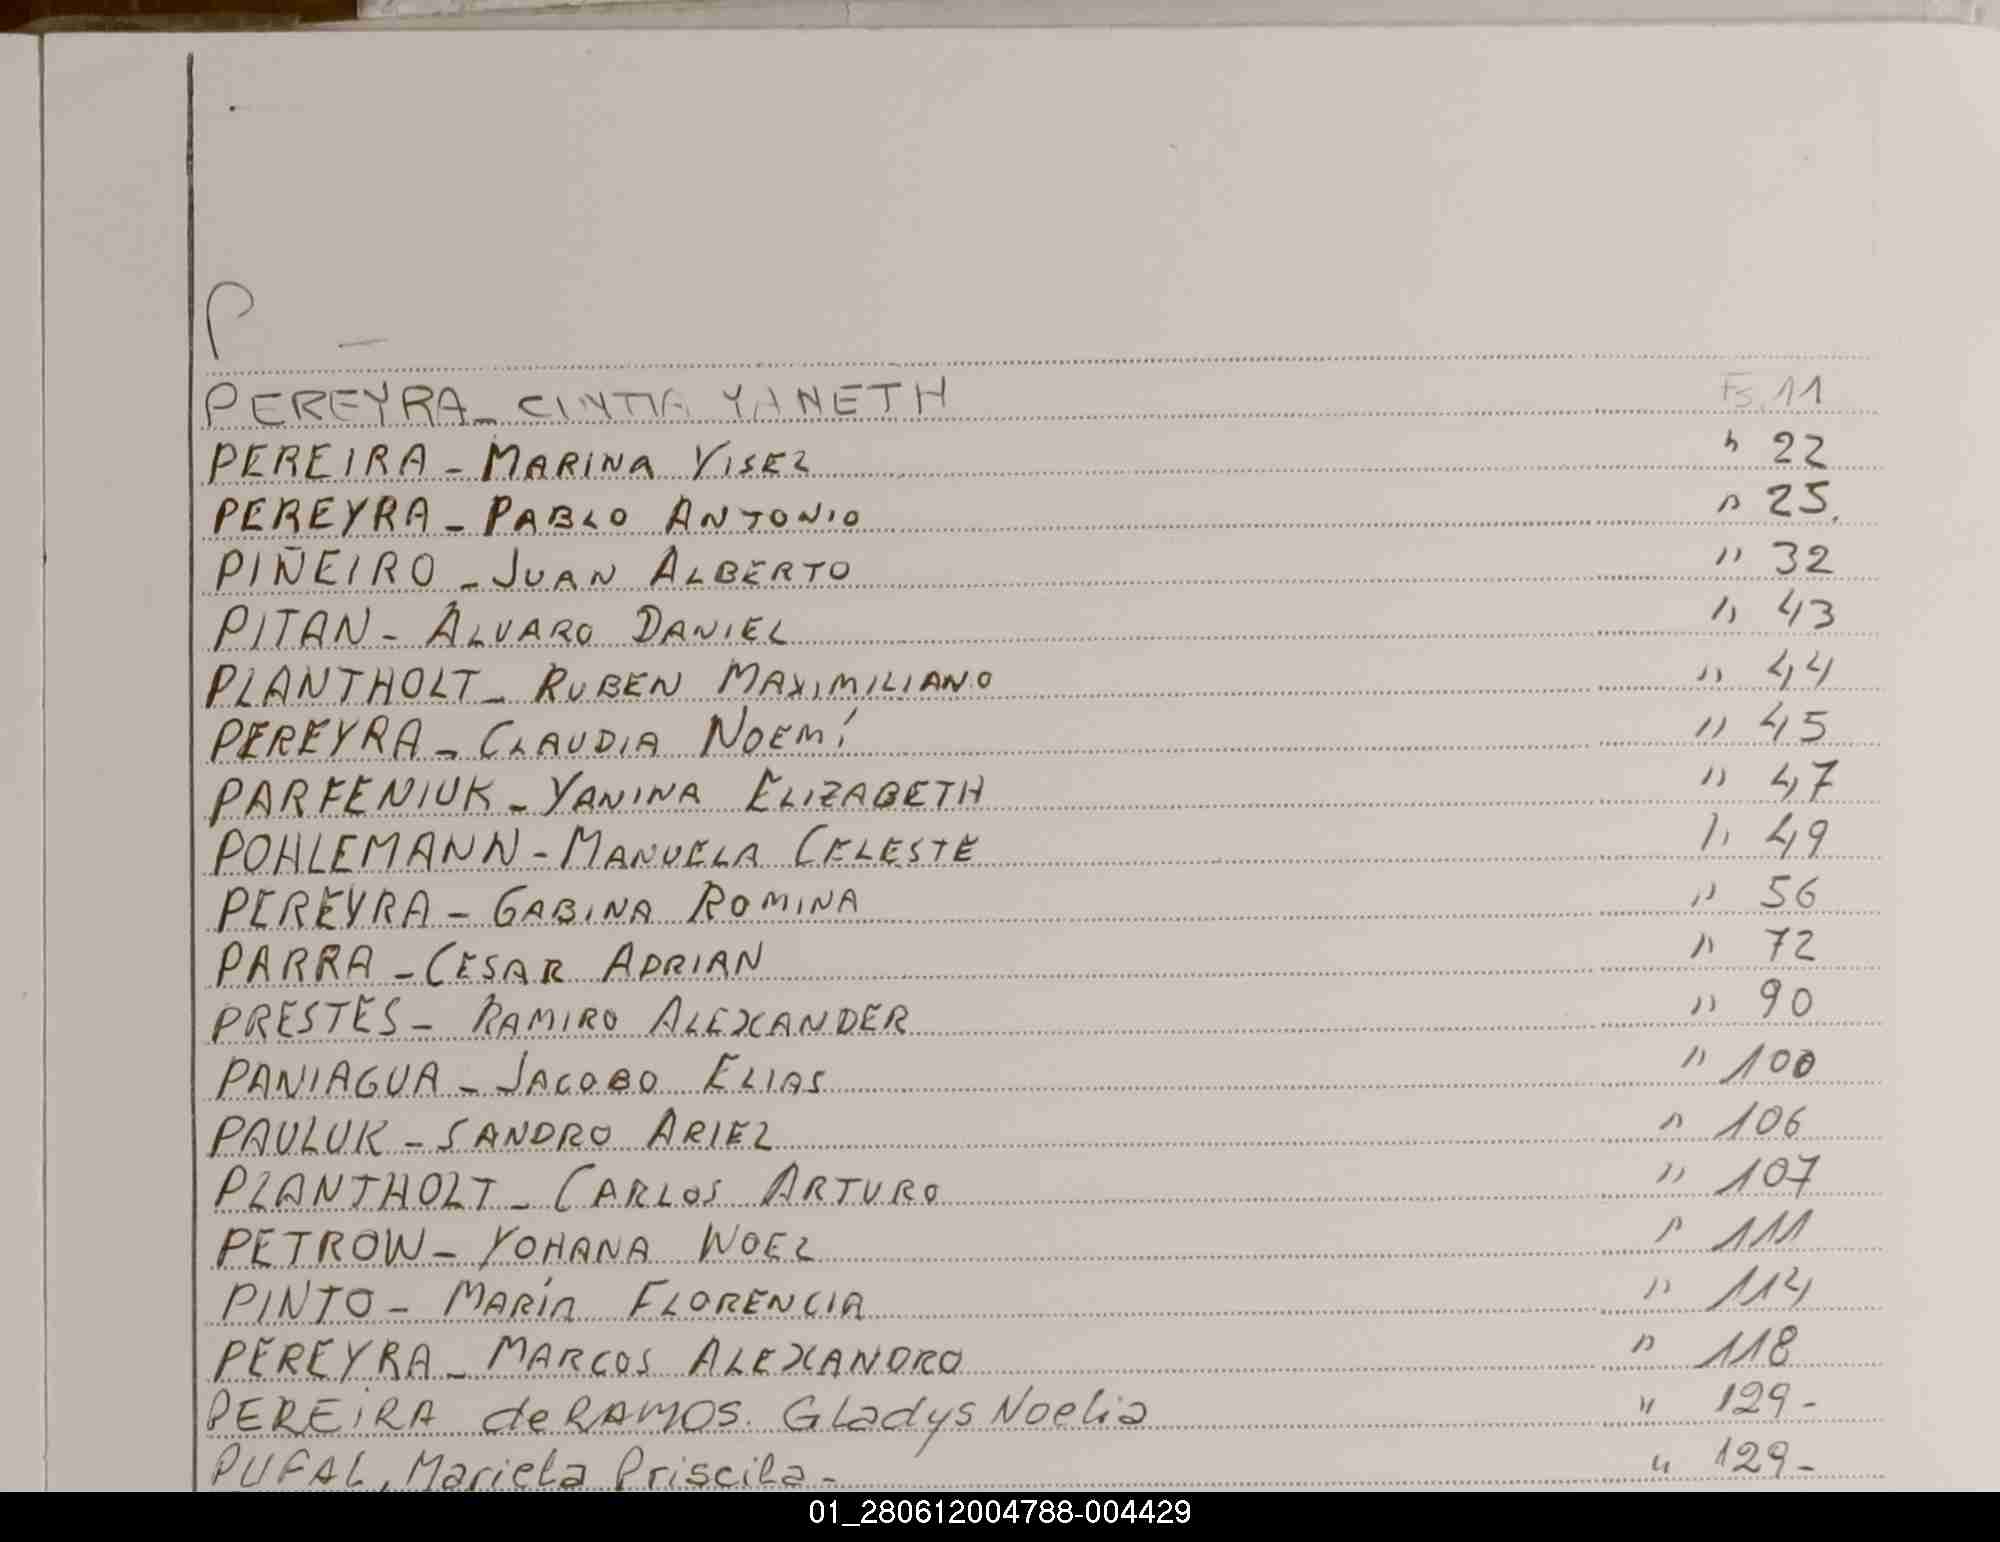 P –
PEREYRA – CINTIA YANETH Fs. 11
PEREIRA – MARINA YISEL " 22
PEREYRA – PABLO ANTONIO " 25.
PIÑEIRO – JUAN ALBERTO " 32
PITAN – ALVARO DANIEL " 43
PLANTHOLT – RUBEN MAXIMILIANO " 44
PEREYRA – CLAUDIA NOEMÍ " 45
PARFENIUK – YANINA ELIZABETH " 47
POHLEMANN – MANUELA CELESTE " 49
PEREYRA – GABINA ROMINA " 56
PARRA – CESAR ADRIAN " 72
PRESTES – RAMIRO ALEXANDER " 90
PANIAGUA – JACOBO ELIAS " 100
PAULUK – SANDRO ARIEL " 106
PLANTHOLT – CARLOS ARTURO " 107
PETROW – YOHANA NOEL " 111
PINTO – MARÍA FLORENCIA " 114
PEREYRA – MARCOS ALEXANDRO " 118
PEREIRA de RAMOS. Gladys Noelia " 129-
PUFAL, Mariela Priscila - " 129-
01_280612004788-004429